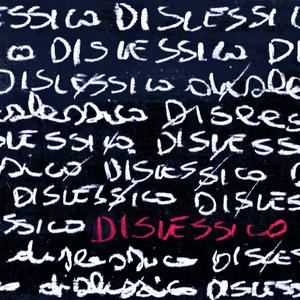 ESSICO DISLESSIC
CO DISLESSICO DI
DISLESSICO disle
slessico DISLES
LESSICO DISLESSIC
SICO DISLESSICO
DISLESSICO DISLES
SSICO DISLESSICO
dislessico DISLES
dislessico DISLESS